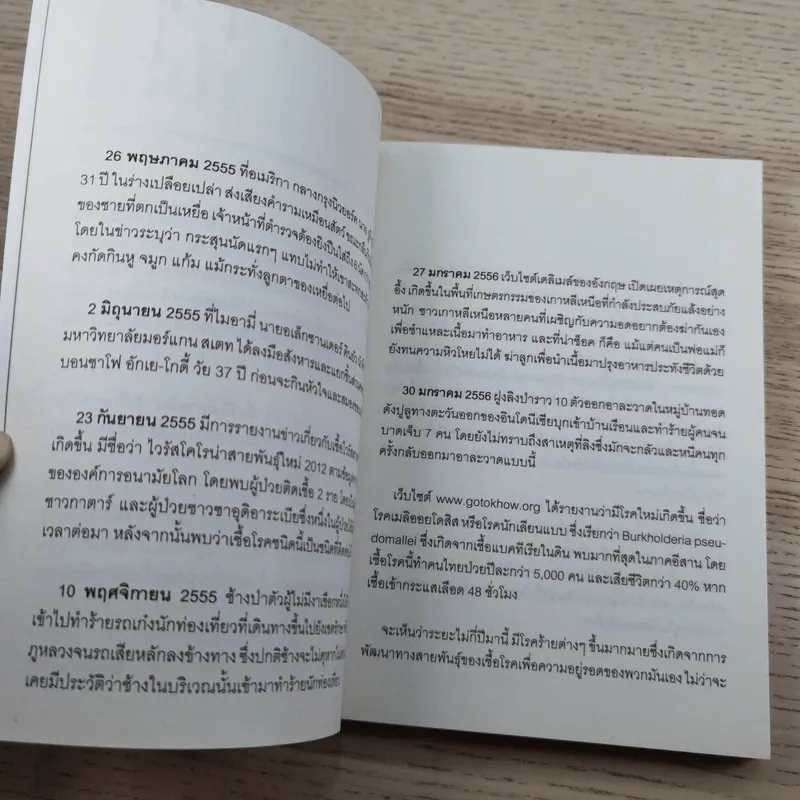 26 พฤษภาคม 2555 ที่อเมริกา กลางกรุงนิวยอร์ค
31 ปี ในร่างเปลือยเปล่า ส่งเสียงคำรามเหมือนสัตว์
ของชายที่ตกเป็นเหยื่อ เจ้าหน้าที่ตำรวจต้องยิงปืนใส่ถึง
โดยในข่าวระบุว่า กระสุนนัดแรกๆ แทบไม่ทำให้เขาสะทกสะท้าน
คงกัดกินหู จมูก แก้ม แม้กระทั่งลูกตาของเหยื่อต่อไป
2 มิถุนายน 2555 ที่ไมอามี่ นายอเล็กซานเดอร์
มหาวิทยาลัยมอร์แกน สเตท ได้ลงมือสังหารและแยกชิ้นส่วน
บอนซาโฟ อักเย-โกดี้ วัย 37 ปี ก่อนจะกินหัวใจและสมอง
23 กันยายน 2555 มีการรายงานข่าวเกี่ยวกับเชื้อไวรัส
เกิดขึ้น มีชื่อว่า ไวรัสโคโรน่าสายพันธุ์ใหม่ 2012 ตามข้อมูล
ขององค์การอนามัยโลก โดยพบผู้ป่วยติดเชื้อ 2 ราย
ชาวกาตาร์ และผู้ป่วยชาวซาอุดิอาระเบียซึ่งหนึ่งในผู้ป่วย
เวลาต่อมา หลังจากนั้นพบว่าเชื้อโรคชนิดนี้เป็นชนิดที่
10 พฤศจิกายน 2555 ช้างป่าตัวผู้ไม่มีงาเชือกหนึ่ง
เข้าไปทำร้ายรถเก๋งนักท่องเที่ยวที่เดินทางขึ้นไปยังเขต
ภูหลวงจนรถเสียหลักลงข้างทาง ซึ่งปกติช้างจะไม่
เคยมีประวัติว่าช้างในบริเวณนั้นเข้ามาทำร้ายนักท่องเที่ยว
27 มกราคม 2556 เว็บไซต์เดลิเมล์ของอังกฤษ เปิดเผยเหตุการณ์สุด
อึ้ง เกิดขึ้นในพื้นที่เกษตรกรรมของเกาหลีเหนือที่กำลังประสบภัยแล้งอย่าง
หนัก ชาวเกาหลีเหนือหลายคนที่เผชิญกับความอดอยากต้องฆ่ากันเอง
เพื่อชำแหละเนื้อมาทำอาหาร และที่น่าช็อค ก็คือ แม้แต่คนเป็นพ่อแม่ก็
ยังทนความหิวโหยไม่ได้ ฆ่าลูกเพื่อนำเนื้อมาปรุงอาหารประทังชีวิตด้วย
30 มกราคม 2556 ฝูงลิงป่าราว 10 ตัวออกอาละวาดในหมู่บ้านทอด
ดังปูลูทางตะวันออกของอินโดนีเซียบุกเข้าบ้านเรือนและทำร้ายผู้คนจน
บาดเจ็บ 7 คน โดยยังไม่ทราบถึงสาเหตุที่ลิงซึ่งมักจะกลัวและหนีคนทุก
ครั้งกลับออกมาอาละวาดแบบนี้
เว็บไซต์ www.gotokhow.org ได้รายงานว่ามีโรคใหม่เกิดขึ้น ชื่อว่า
โรคเมลิออยโดสิส หรือโรคนักเลียนแบบ ซึ่งเรียกว่า Burkholderia pseu-
domallei ซึ่งเกิดจากเชื้อแบคทีเรียในดิน พบมากที่สุดในภาคอีสาน โดย
เชื้อโรคนี้ทำคนไทยป่วยปีละกว่า 5,000 คน และเสียชีวิตกว่า 40% หาก
เชื้อเข้ากระแสเลือด 48 ชั่วโมง
จะเห็นว่าระยะไม่กี่ปีมานี้ มีโรคร้ายต่างๆ ขึ้นมากมายซึ่งเกิดจากการ
พัฒนาทางสายพันธุ์ของเชื้อโรคเพื่อความอยู่รอดของพวกมันเอง ไม่ว่าจะ